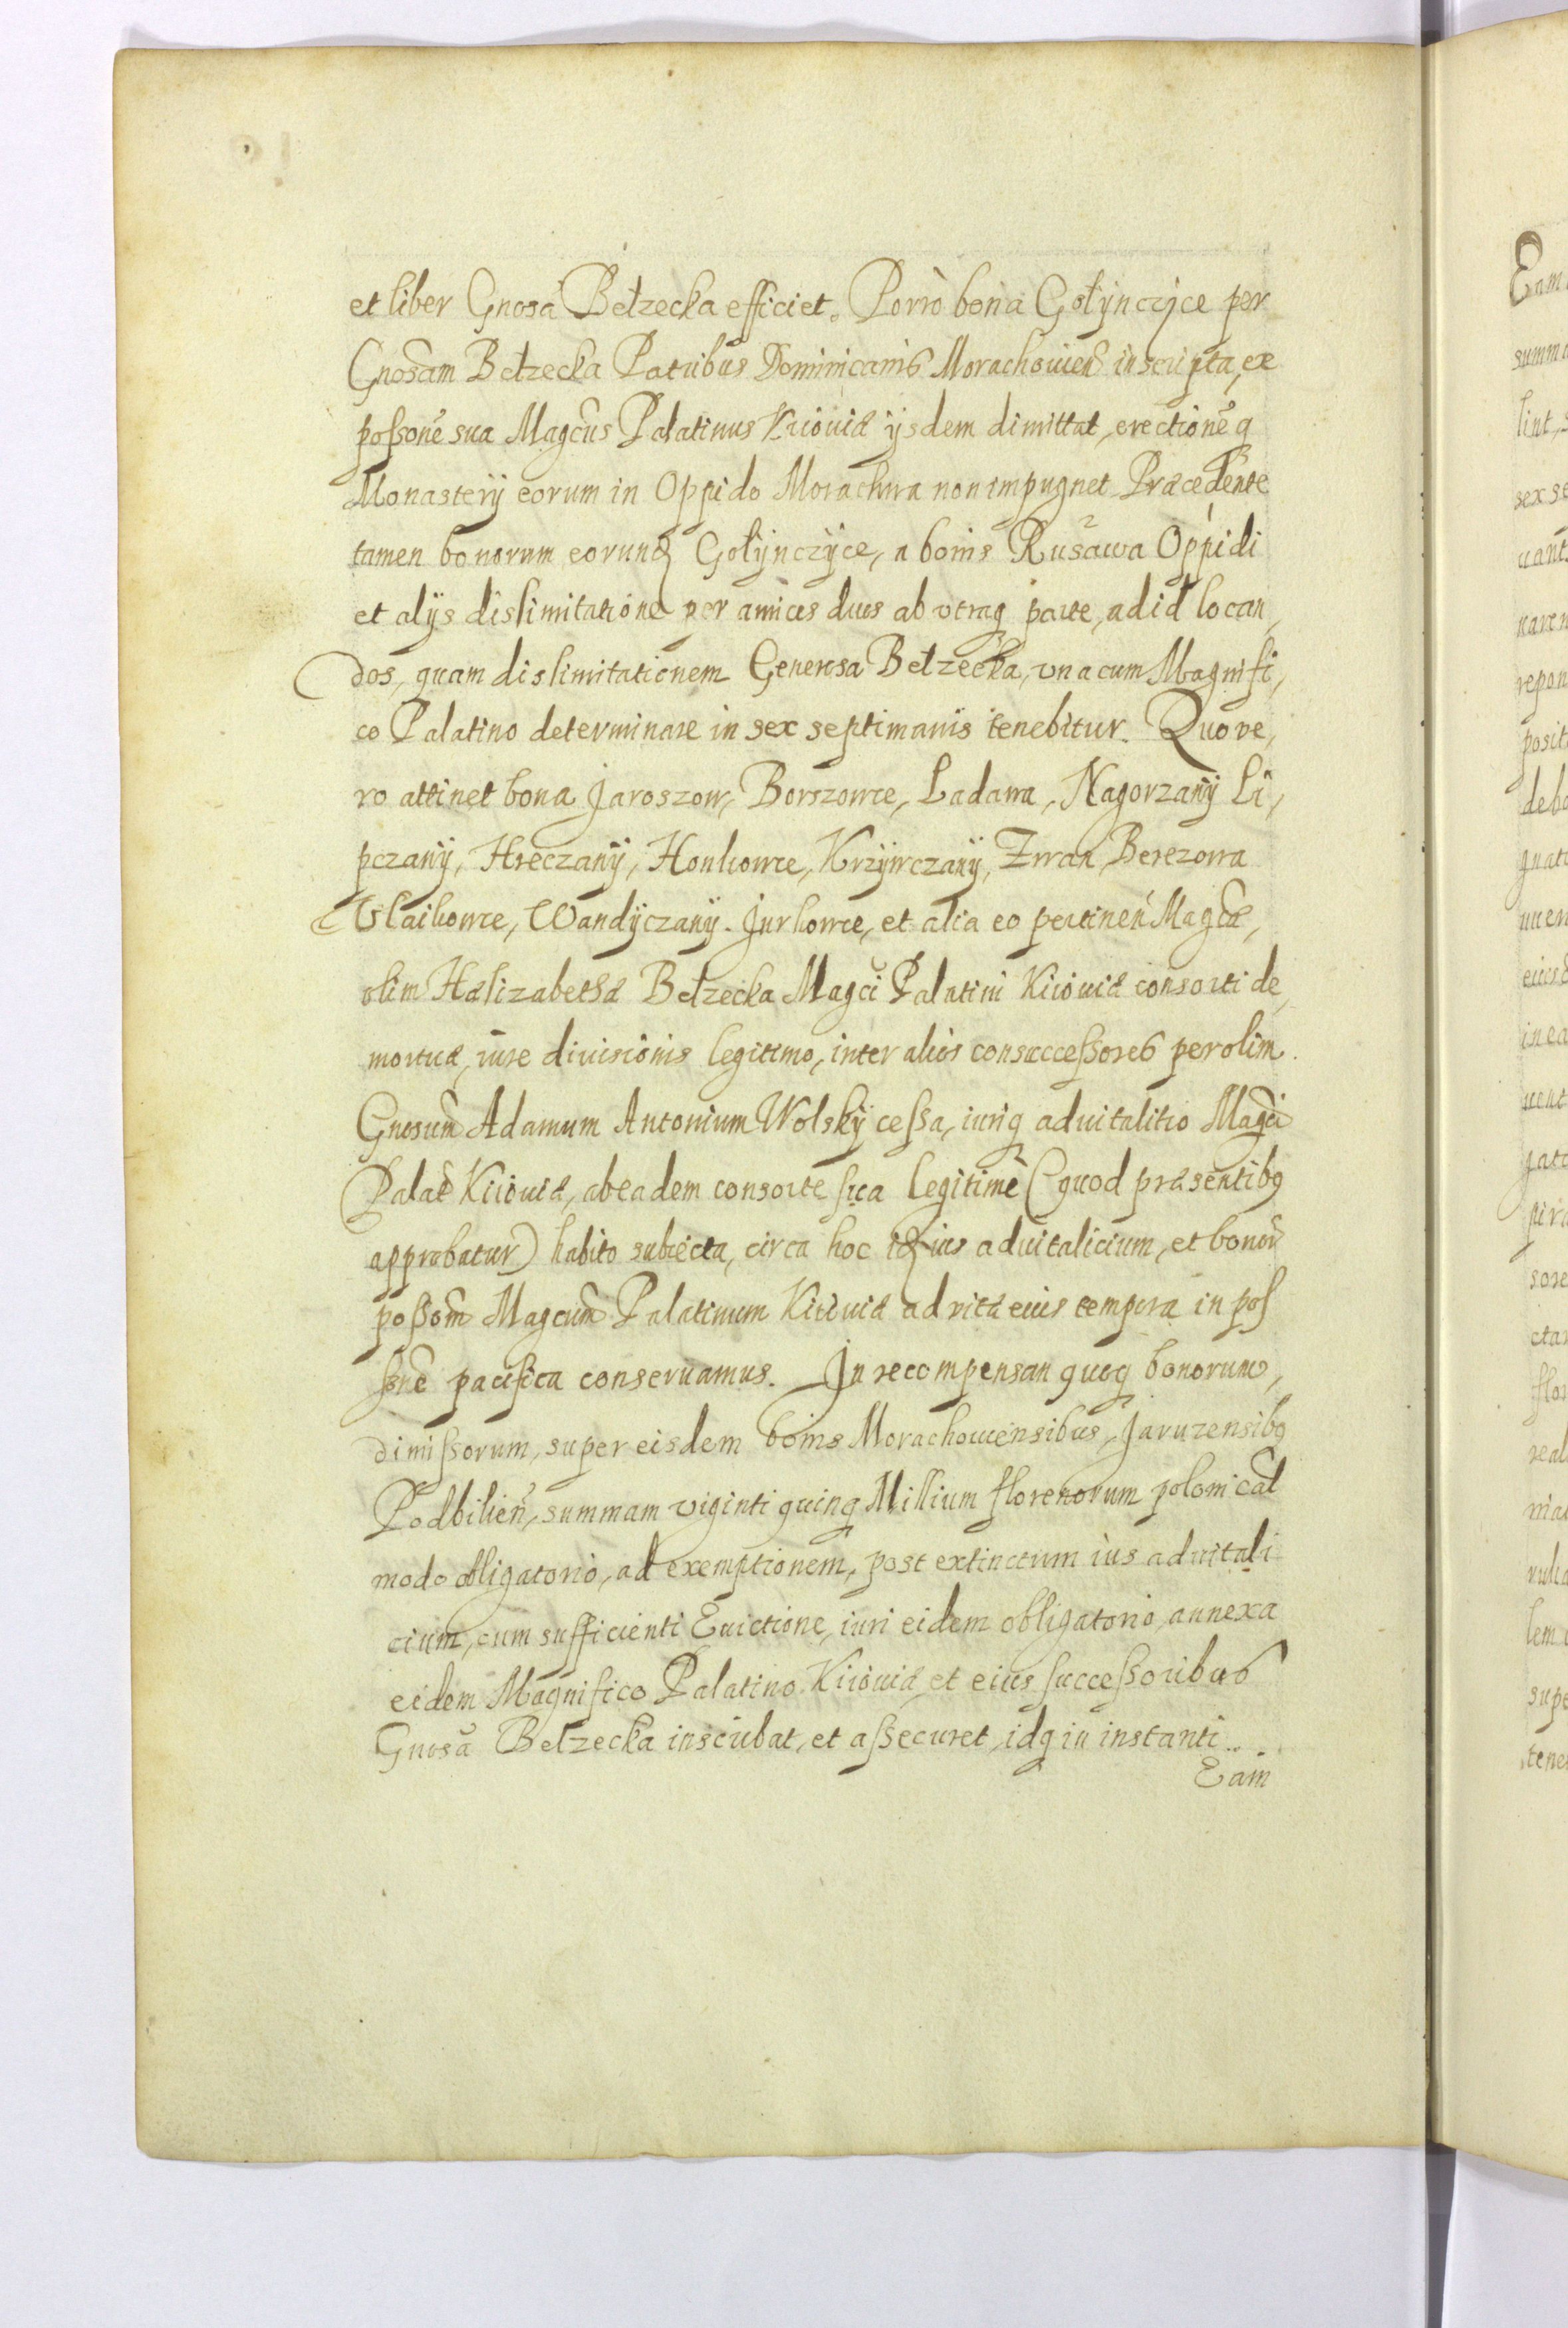 et liber Gnosa Bełzecka efficiet. Porrò bona Gołynczyce per
Gnosam Bełzecka Patribus Dominicanis Morachouien inscripta, ex
possone sua Magcus Palatinus Kiiouiæ ijsdem dimittat, erectioneq
Monasterij eorum in Oppido Morachwa non impugnet. Præcedente
tamen bonorum eorund Gołynczyce, a bonis Rusawa Oppidi
et alijs dislimitatione per amicos duos ab vtraq parte, ad id locan,
dos, quam dislimitationem Generosa Bełzecka, vna cum Magnifi,
co Palatino determinare in sex septimanis tenebitur. Quo ve,
ro attinet bona Jaroszow, Borszowce, Ladawa, Nagorzany Li,
pczany, Hreczany, Honkowce, Krzywczany, Zwan, Berezowa
Vlaikowce, Wandyczany. Jurkowce, et alia eo pertinen Magcæ,
olim Hælizabethæ Bełzecka Magci Palatini Kiiouiæ consorti de,
mortuæ, iure diuisionis legitimo, inter alios consuccessores per olim
Gnosum Adamum Antonium Wolsky cessa, iuriq aduitalitio Magci
Palat Kiiouiæ, ab eadem consorte sua legitimè (quod præsentibq
approbatur) habito subiecta, circa hoc id ius aduitalicium, et bonor
possom Magcum Palatinum Kiiouiæ ad vitæ eius tempora in pos
sne pacifica conseruamus. In recompensan quoq bonorum,
dimissorum, super eisdem bonis Morachouiensibus, Jaruzensibq
Podbilien, summam viginti quinq Millium florenorum polonical
modo obligatorio, ad exemptionem, post extinctum ius aduitali
cium, cum sufficienti Euictione, iuri eidem obligatorio, annexa
eidem Magnifico Palatino Kiiouiæ et eius successoribus
Gnosa Bełzecka inscribat, et assecuret, idq in instanti..
Eam